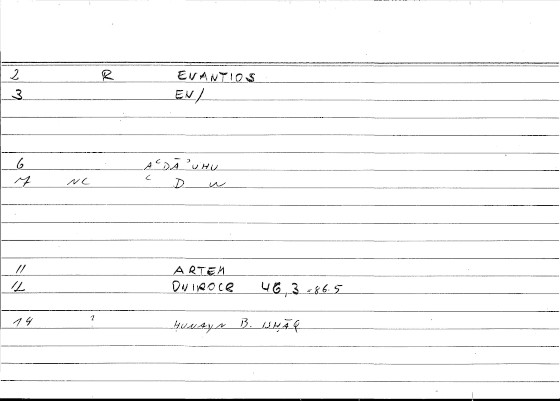 2 R EVANTIOS
3 EV/
6 AᶜDĀʾUHU
7 NC ᶜ D W
11 ARTEM
12 ONIROCR 46,3-86.5
14 ? HUNAYN B. ISHĀQ